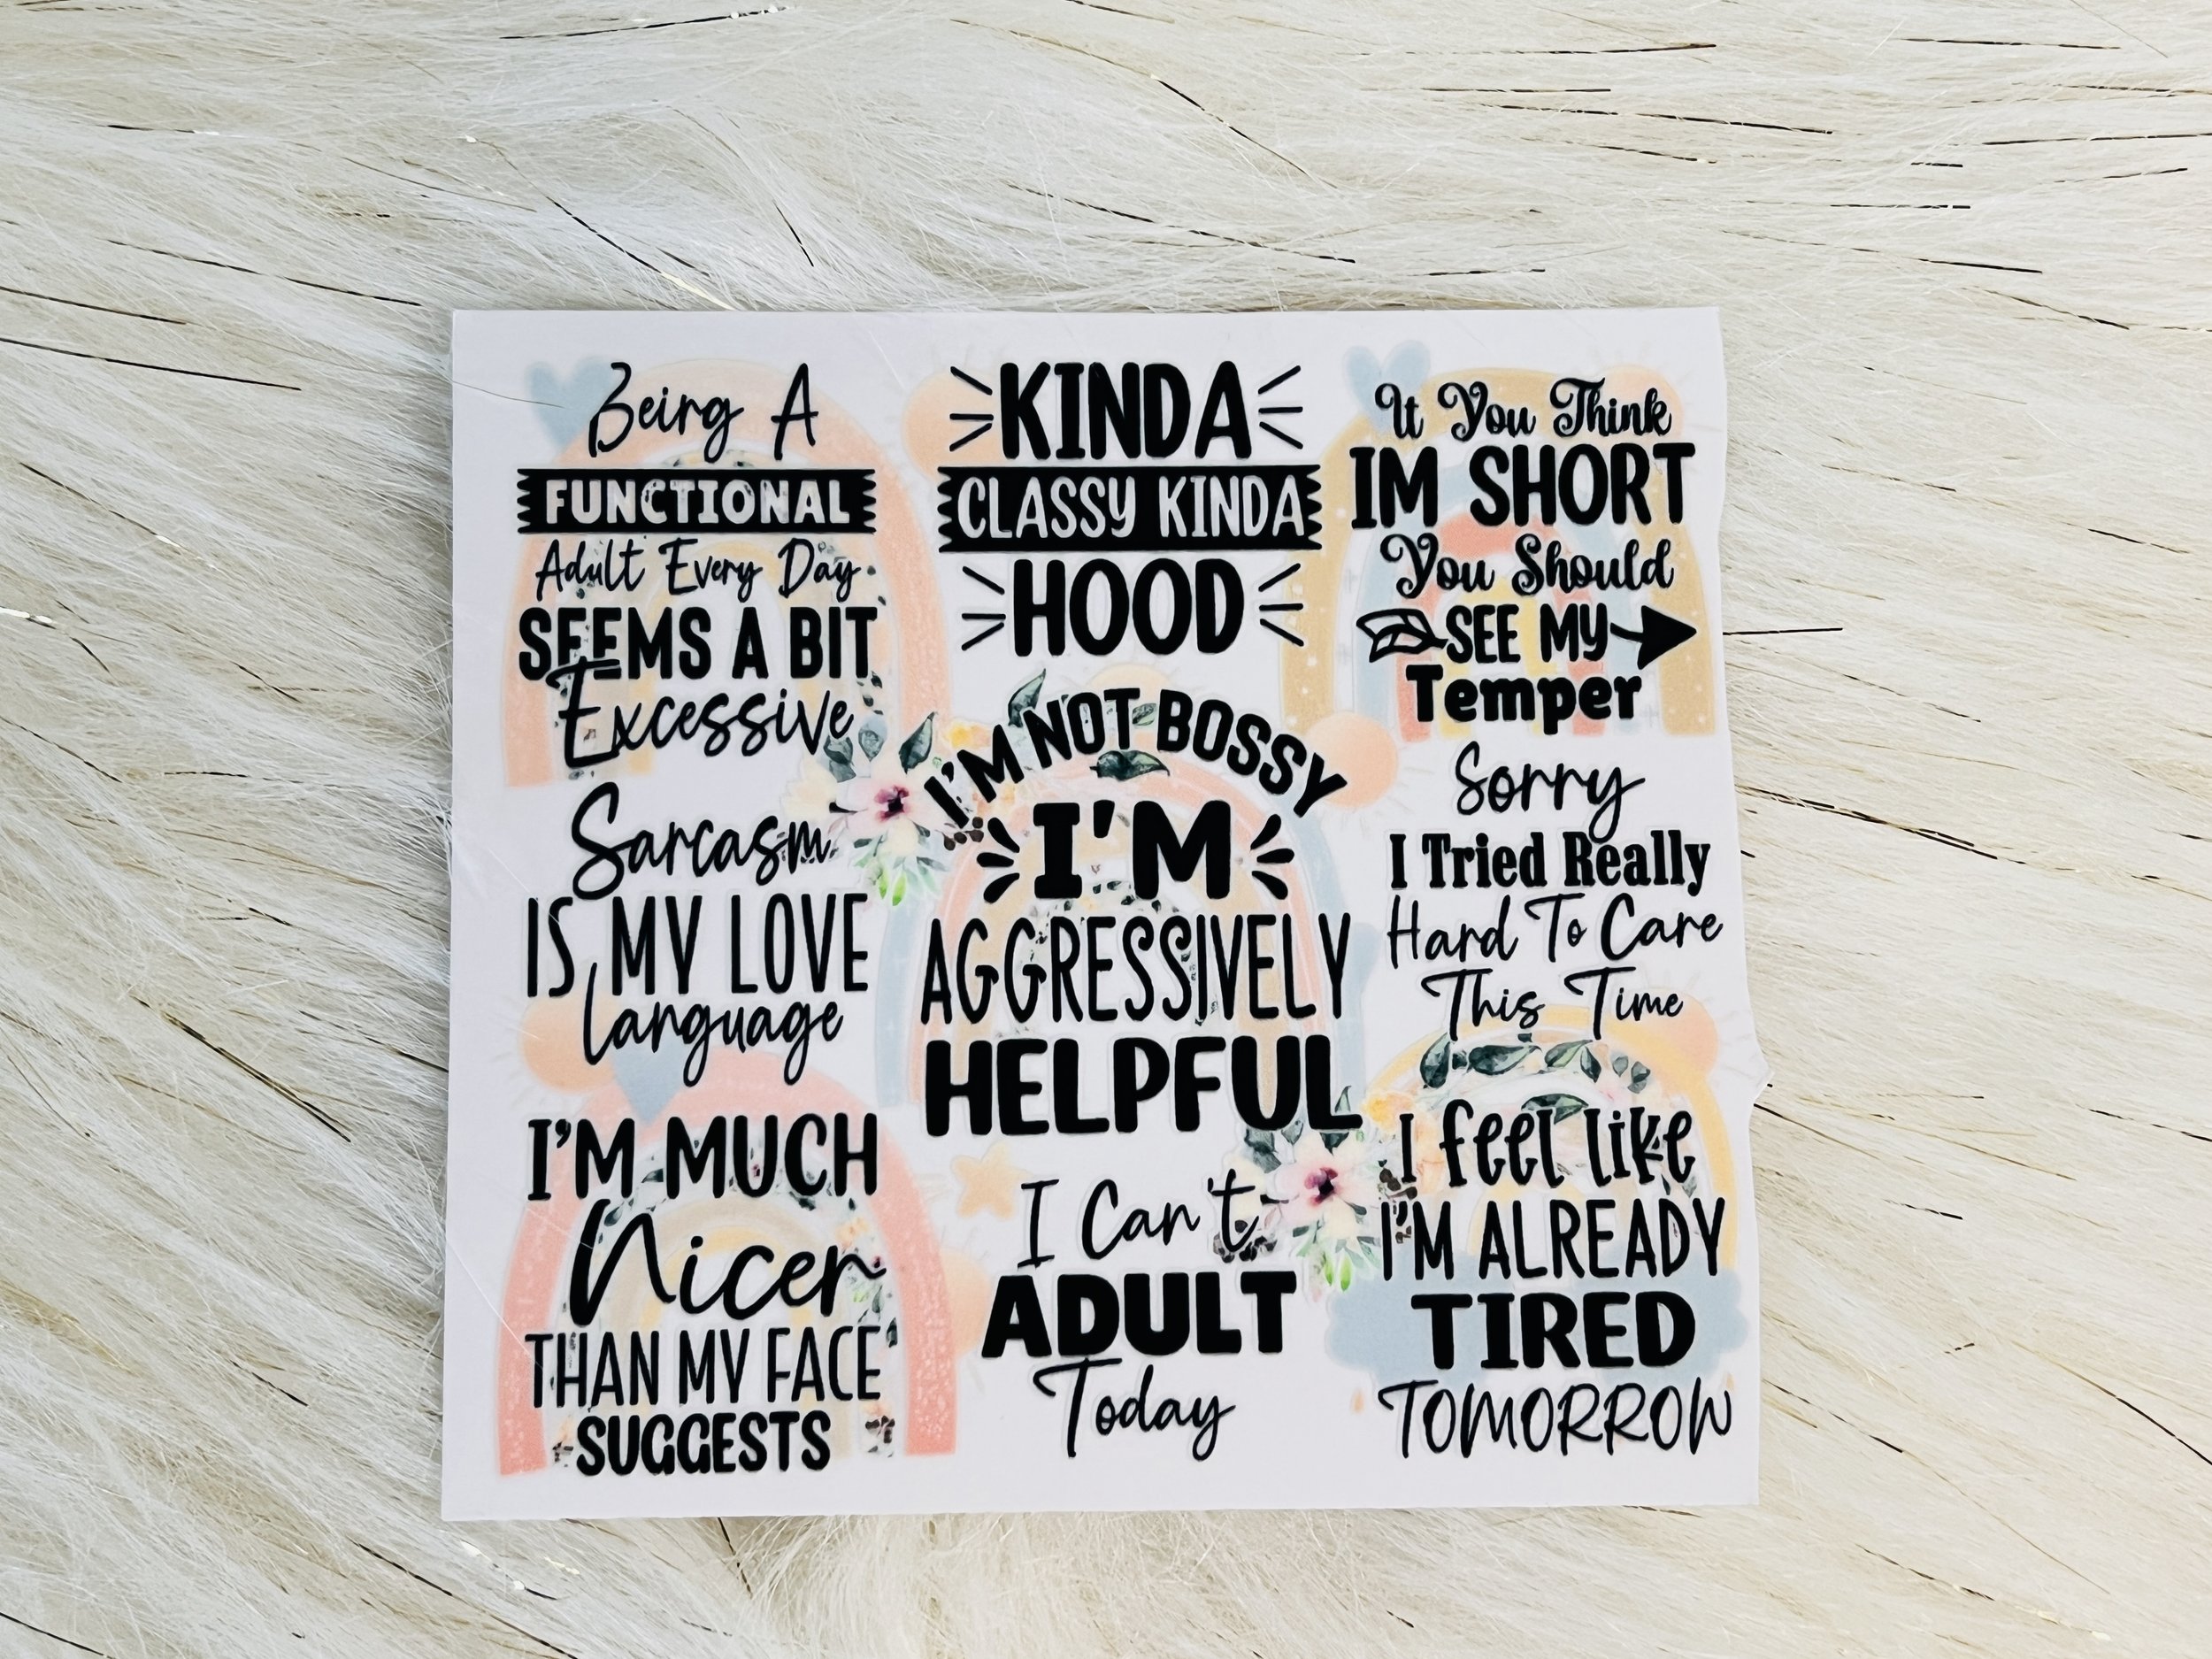 Being A
FUNCTIONAL
Adult Every Day
SEEMS A BIT
Excessive
Sarcasm
IS MY LOVE
language
I'M MUCH
Nicer
THAN MY FACE
SUGGESTS
KINDA
CLASSY KINDA
HOOD
I'M NOT BOSSY
I'M
AGGRESSIVELY
HELPFUL
I Can't
ADULT
Today
If You Think
IM SHORT
You Should
SEE MY
Temper
Sorry
I Tried Really
Hard To Care
This Time
I feel like
I'M ALREADY
TIRED
TOMORROW